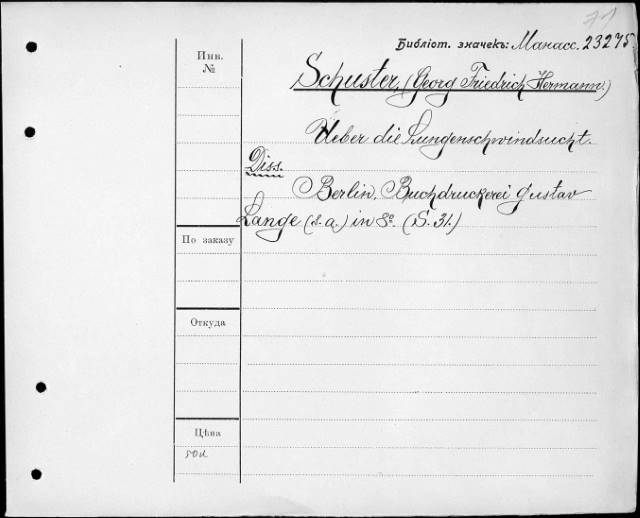 Библіот. значекъ: Манасс. 23275
Инв.
№
Schuster, (Georg Friedrich Hermann.)
Ueber die Lungenschwindsucht.
Diss.
Berlin, Buchdruckerei Gustav
Lange (s.a.) in 8º. (S. 31.)
По заказу
Откуда
Цѣна